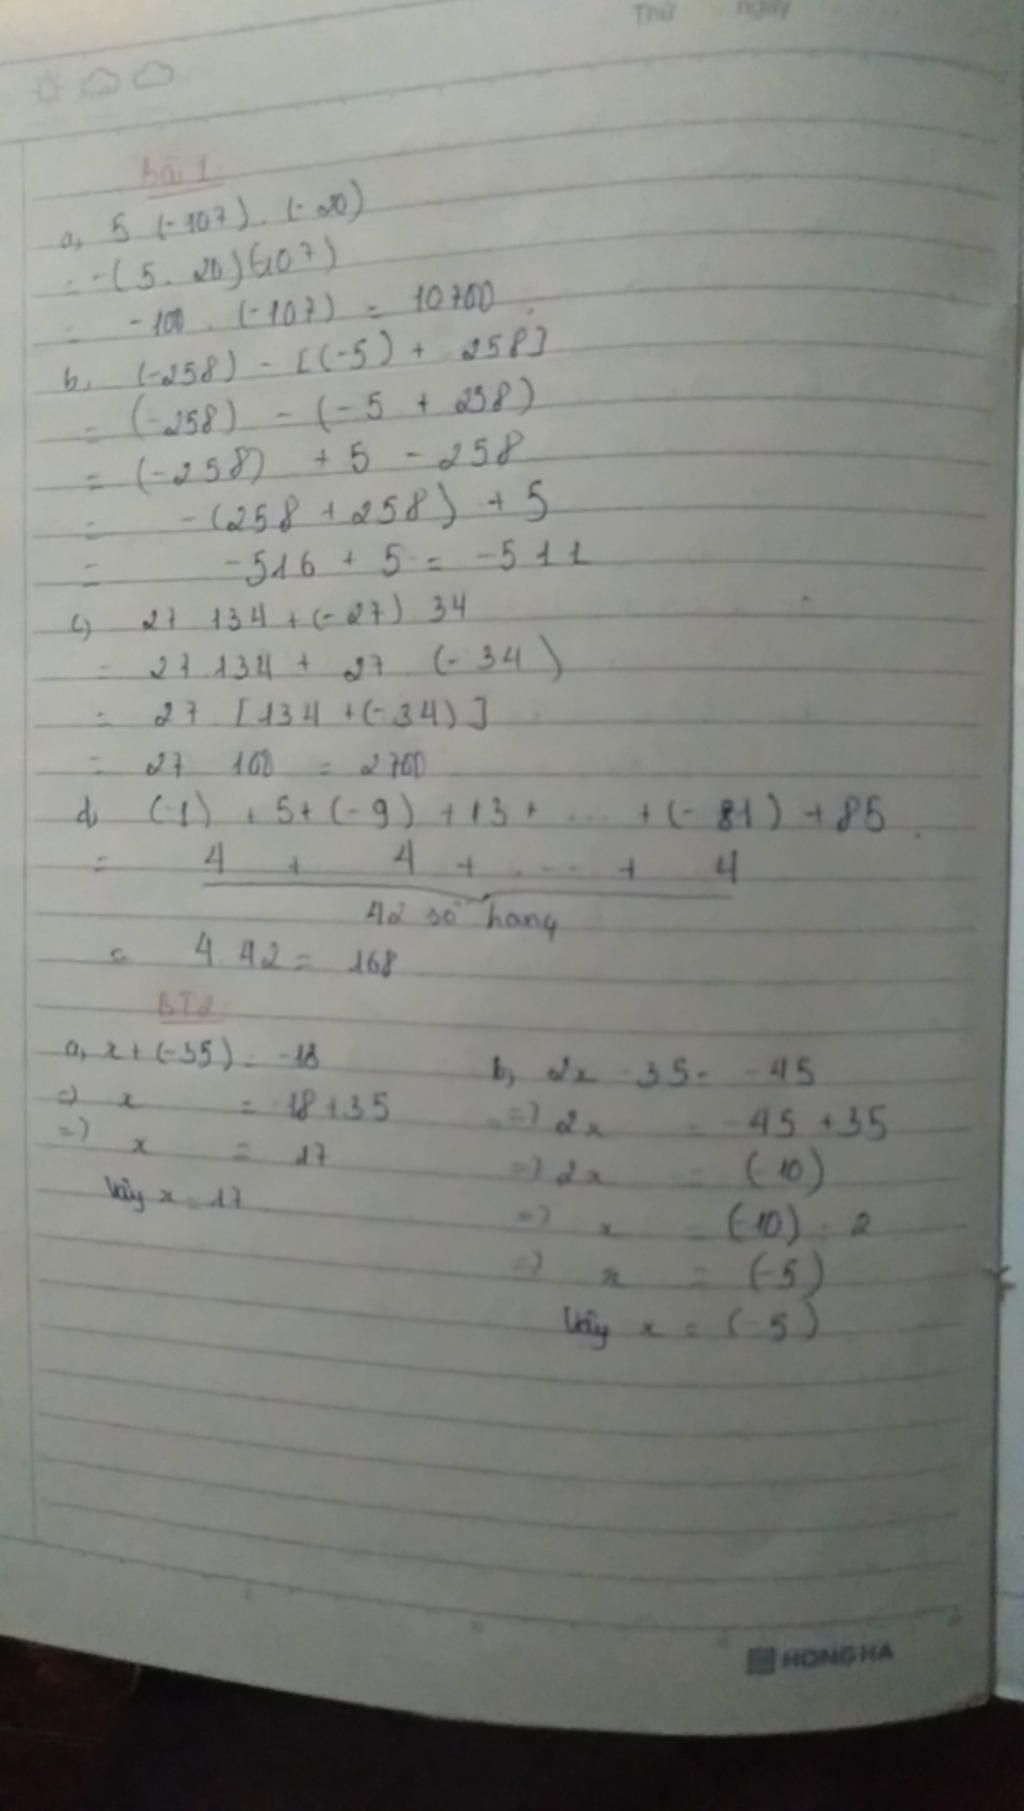 Thứ ngày
Bài 1
a, 5 (-107) . (-20)
= -(5 . 20)(-107)
= -100 . (-107) = 10700
b, (-258) - [(-5) + 258]
= (-258) - (-5 + 258)
= (-258) + 5 - 258
= -(258 + 258) + 5
= -516 + 5 = -511
c) 27 134 + (-27) . 34
= 27 134 + 27 (-34)
= 27 [134 + (-34)]
= 27 100 = 2700
d, (-1) + 5 + (-9) + 13 + ... + (-81) + 85
= 4 + 4 + .... + 4
42 số hang
= 4 . 42 = 168
BT2
a, x + (-35) = -18
=> x = -18 + 35
=> x = 17
Vậy x = 17
b, 2x - 35 = -45
=> 2x = -45 + 35
=> 2x = (-10)
=> x = (-10) : 2
=> x = (-5)
Vậy x = (-5)
HONG HA